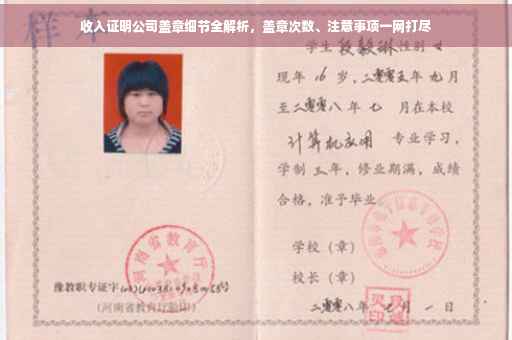 收入证明公司盖章细节全解析，盖章次数、注意事项一网打尽
样本
学生 段毅琳 性别 女
现年 16 岁，二零零五年 九月
至二零零八年 七 月在本校
计算机应用 专业学习，
学制 三年，修业期满，成绩
合格，准予毕业
学校（章）
校长（章）
二零零八年 七 月 一 日
河南省教育厅
豫教职专证字
（河南省教育厅验印）